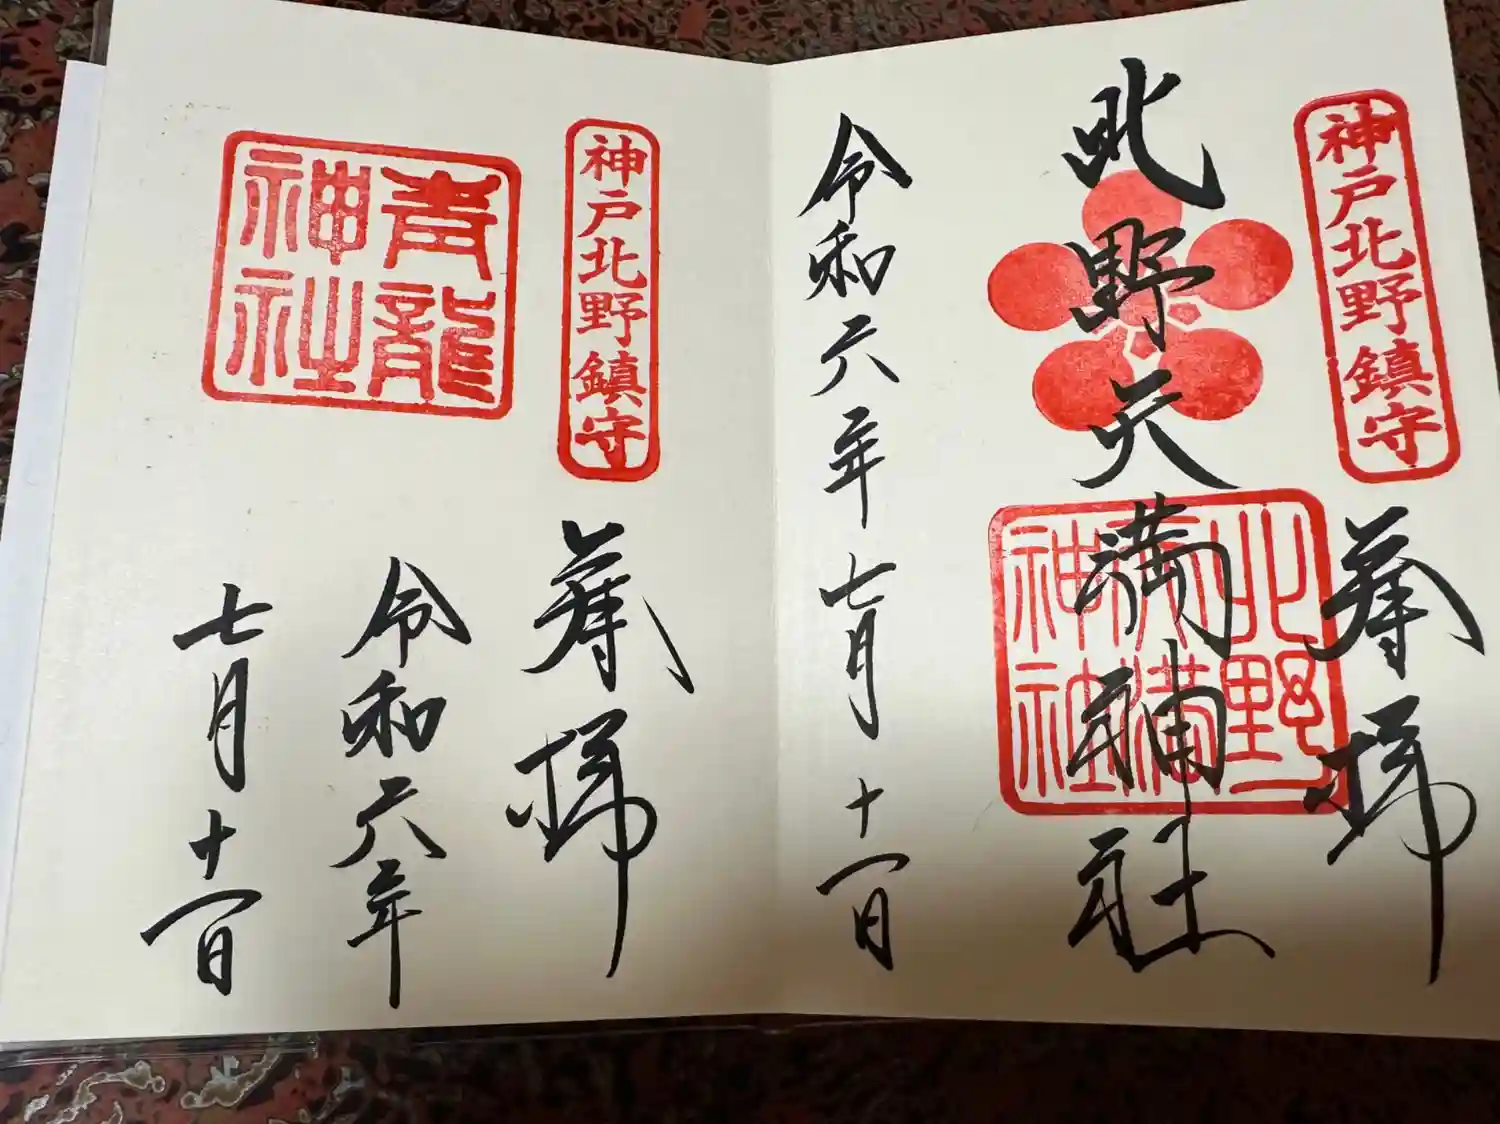 神戸北野鎮守
奉拝
北野天満神社
北野
天満
神社
令和六年七月十一日
神戸北野鎮守
奉拝
令和六年
七月十一日
青龍
神社